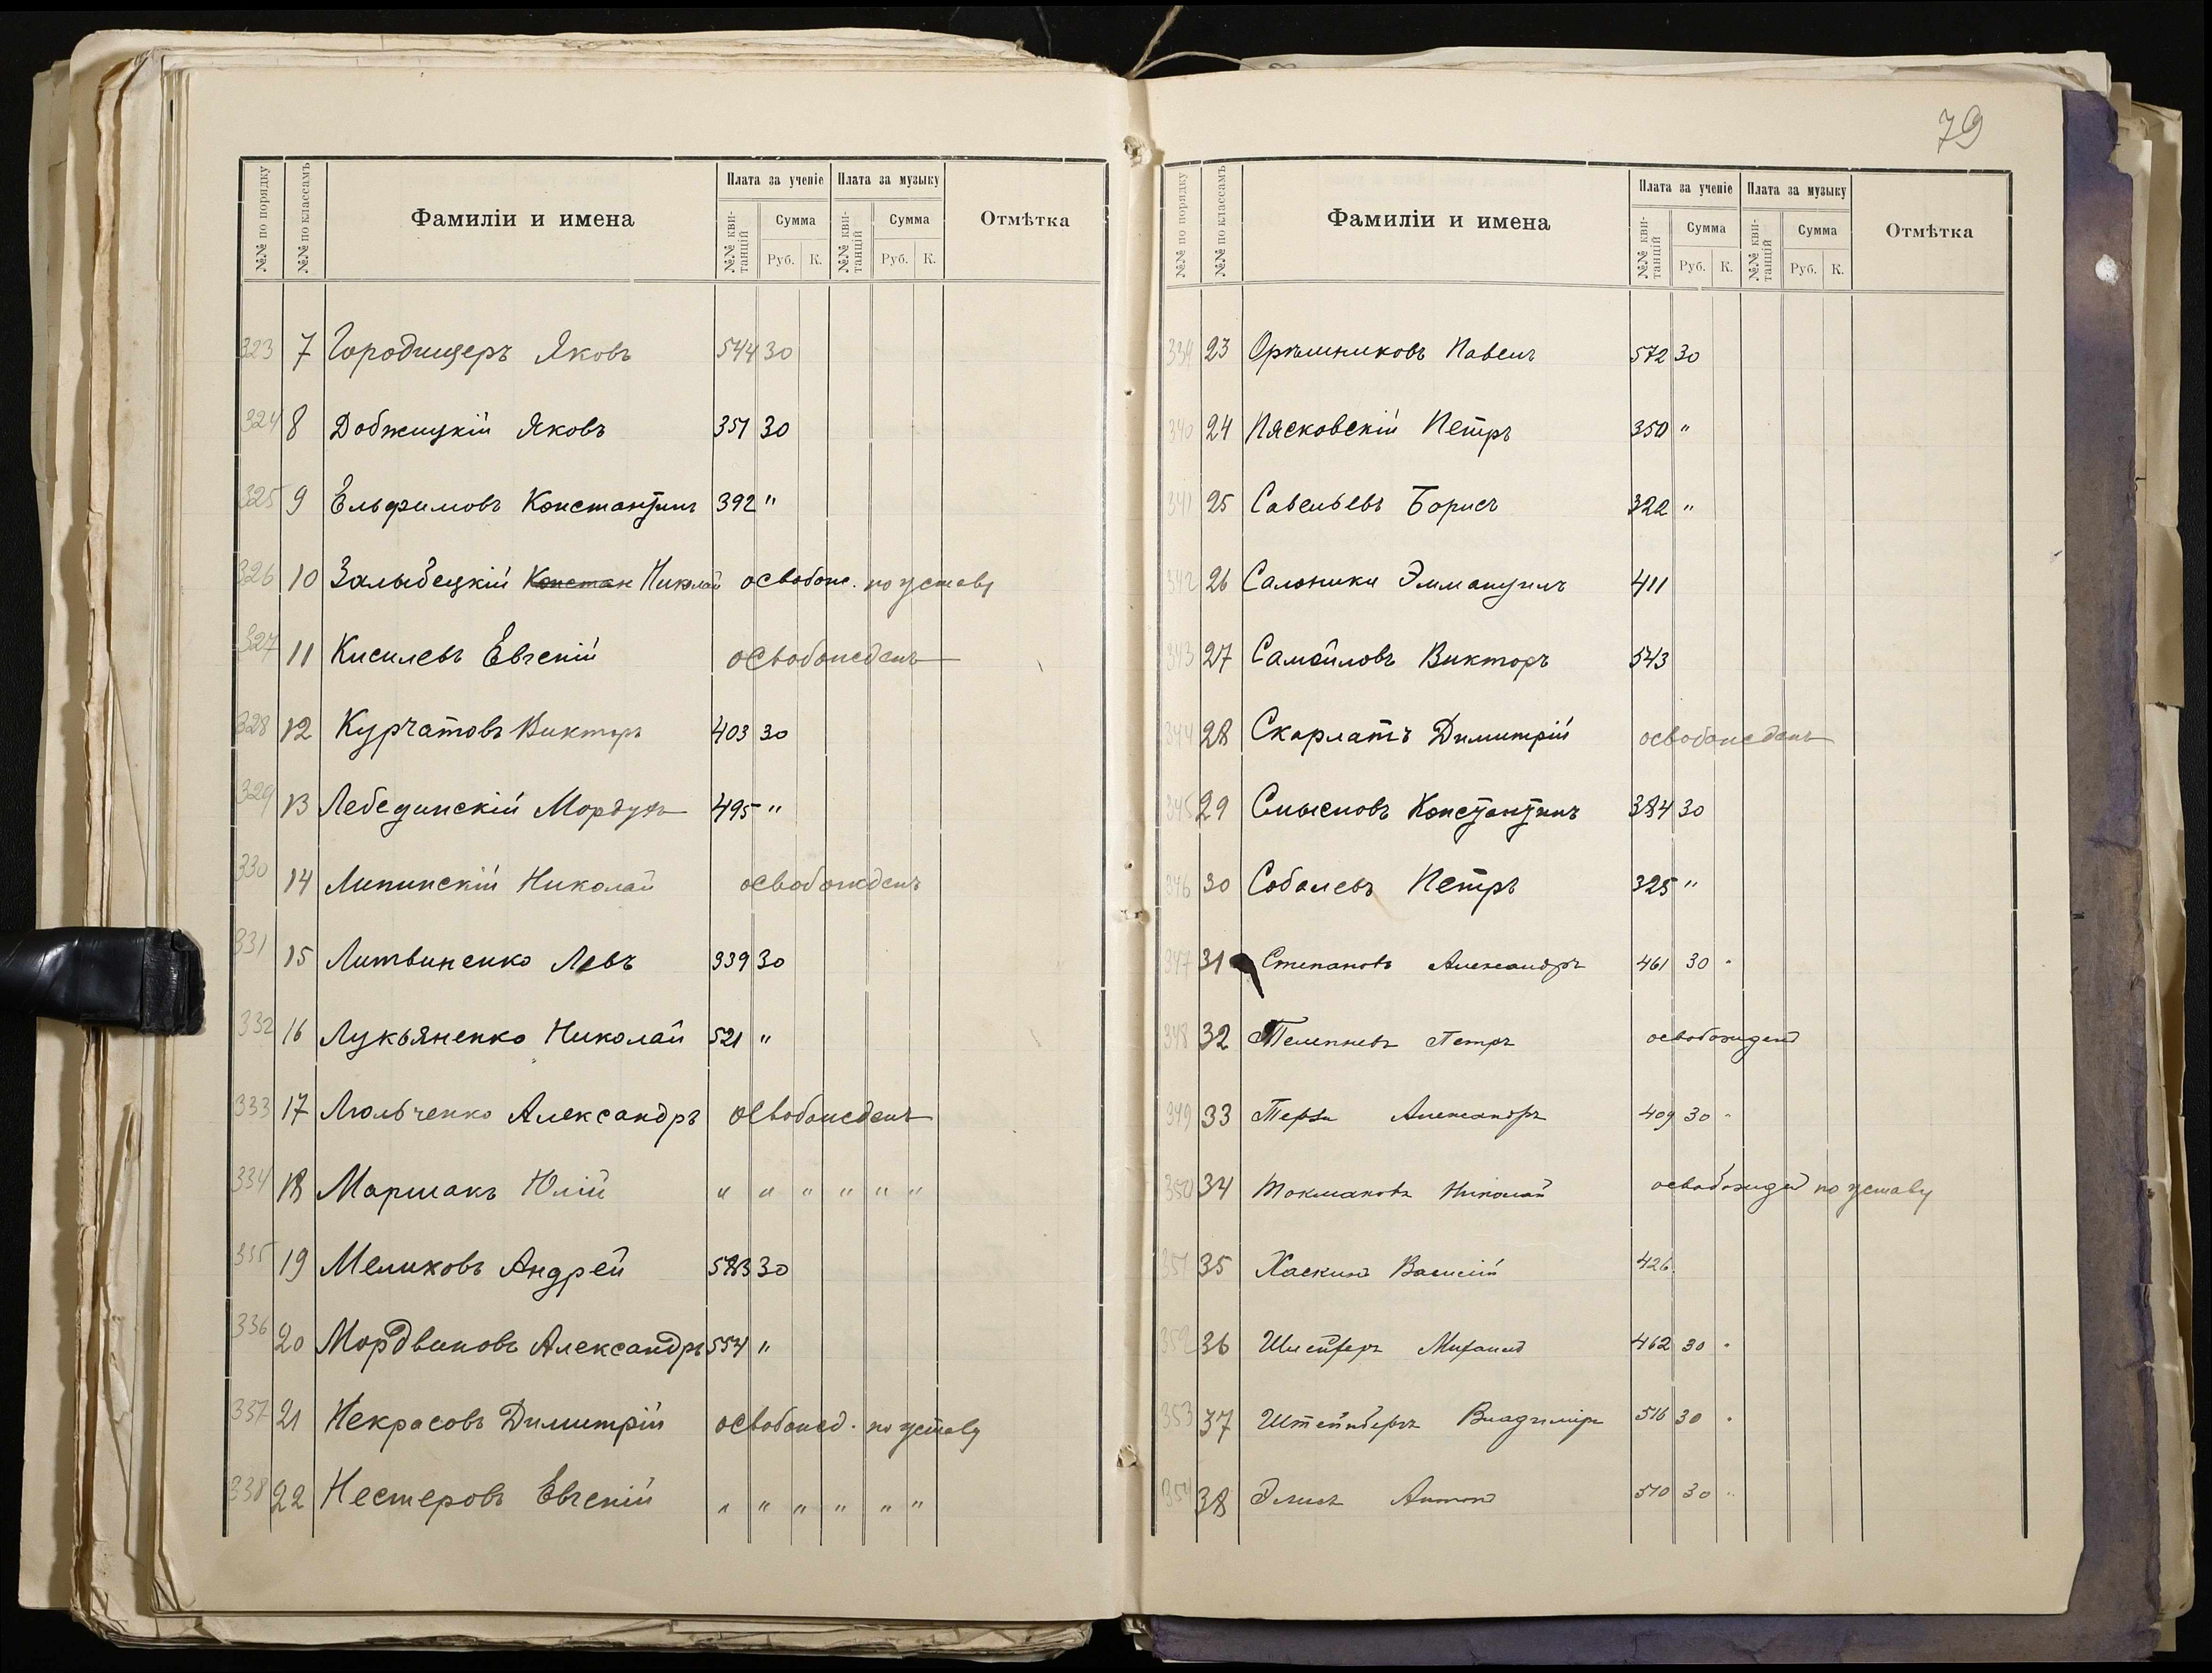 79
№№ по порядку №№ по классамъ Фамиліи и имена Плата за ученіе Плата за музыку Отмѣтка
№№ кви-танцій Сумма №№ кви-танцій Сумма
Руб. К. Руб. К.
323 7 Городищеръ Яковъ 544 30
324 8 Добжицкій Яковъ 351 30
325 9 Ельфимовъ Константинъ 392 "
326 10 Констан Николай освобожд. по уставу
327 11 Киселевъ Евгеній освобожденъ
328 12 Курчатовъ Викторъ 403 30
329 13 Лебединскій Мордухъ 495 "
330 14 Липинскій Николай освобожденъ
331 15 Литвиненко Левъ 339 30
332 16 Лукьяненко Николай 521 "
333 17 Люльченко Александръ освобожденъ
334 18 Маршакъ Юлій " " " " " "
335 19 Меликовъ Андрей 583 30
336 20 Мордвиновъ Александръ 554 "
337 21 Некрасовъ Димитрій освобожд. по уставу
338 22 Нестеровъ Евгеній " " " " " "
№№ по порядку №№ по классамъ Фамиліи и имена Плата за ученіе Плата за музыку Отмѣтка
№№ кви-танцій Сумма №№ кви-танцій Сумма
Руб. К. Руб. К.
339 23 Орѣшниковъ Павелъ 572 30
340 24 Пясковскій Петръ 350 "
341 25 Савельевъ Борисъ 322 "
342 26 Салоники Эммануилъ 411
343 27 Самойловъ Викторъ 543
344 28 Скарлатъ Димитрій освобожденъ
345 29 Смысловъ Константинъ 384 30
346 30 Соболевъ Петръ 325 "
347 31 Степановъ Александръ 461 30 "
348 32 Телепневъ Петръ освобожденъ
349 33 Терзи Александръ 409 30 "
350 34 Токмаковъ Николай освобожден по уставу
351 35 Хаскинъ Василій 426
352 36 Шлейферъ Михаилъ 462 30 "
353 37 Штейнбергъ Владиміръ 516 30 "
354 38 Антонъ 510 30 "